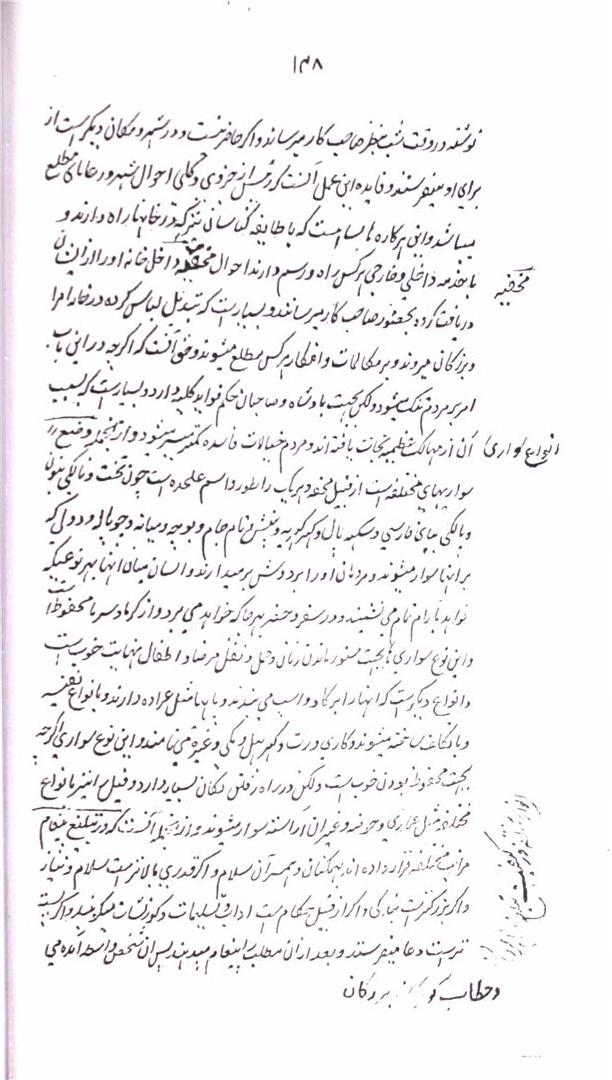 ۱۴۸
نوشته در وقت شب بنظر صاحب کار میرساند و اگر حاضر نیست و در شهر و مکان دیگر است از
برای او میفرستند و فایده این عمل آنست که رئیس از جزوی و کلی احوال شهر و رعایا مطلع
میباشد و این هرکاره ها بسیار است که با طایفه کناسانی نیز که در خانها راه دارند و
با خدمه داخلی و خارجی هر کس راه و رسم دارند احوال مخفیه داخل خانه او را از ایشان
مخفیه
دریافت کرده بحضور صاحب کار میرسانند و بسیار است که تبدیل لباس کرده در خانه امرا
و بزرگانی میروند و بر مکالمات و افکار هر کس مطلع میشوند و حق آنست که اگر چه در این باب
امر بر مردم تنگ میشود ولکن بجهت پادشاه و صاحبان حکم فواید کلیه دارد و بسیار است که بسبب
آن از مهالک عظیمه نجات یافته اند و مردم خیالات فاسده کمتر میشود و از آنجمله وضع
انواع سواری
سواریهای مختلفه است از قبیل محفه و هر یک را بطور و اسم علحده است چون تخت و پالکی
و پالکی فارسی و سکهپال و نام جام و بوچه و میانه و چوپاله و دولی که
بر آنها سوار میشوند و مردمان او را بر دوش برمیدارند و انسان میان آنها بهر نوعیکه
خواهد بآرام تمام می نشیند و در سفر و حضر بهر جا که خواهد می برد و از گرما و سرما محفوظ است
و این نوع سواری ها بجهت مستور ماندن زنان و حمل و نقل مرضا و اطفال نهایت خوب است
و انواع دیگر است که آنها را بر گاو و اسب می بندند و پاها مثل عراده دارند و بانواع نفیسه
و با تکلف ساخته میشوند و گاری و رت و بگی و غیره می نامند و این نوع سواری اگر چه
بجهت محفوظ بودن خوب است ولکن در راه رفتن تکان بسیار دارد و فیل را نیز بانواع
مختلفه مثل عماری و حوضه و غیر آن آراسته سوار میشوند و از آنجمله آنست که در تبلیغ پیغام
مراتب مختلفه قرار داده اند بهمگنان و همسر آن سلام و اگر قدری بالاتر است سلام و نیاز
و اگر بزرگتر است بندگی و اگر از قبیل حکام است آداب و تسلیمات و کورنشات میگویند و اگر پست
تر است دعا میفرستند و بعد از آن مطلب را پیغام میدهند پس آن شخص واسطه آمده می
و خطاب بزرگان